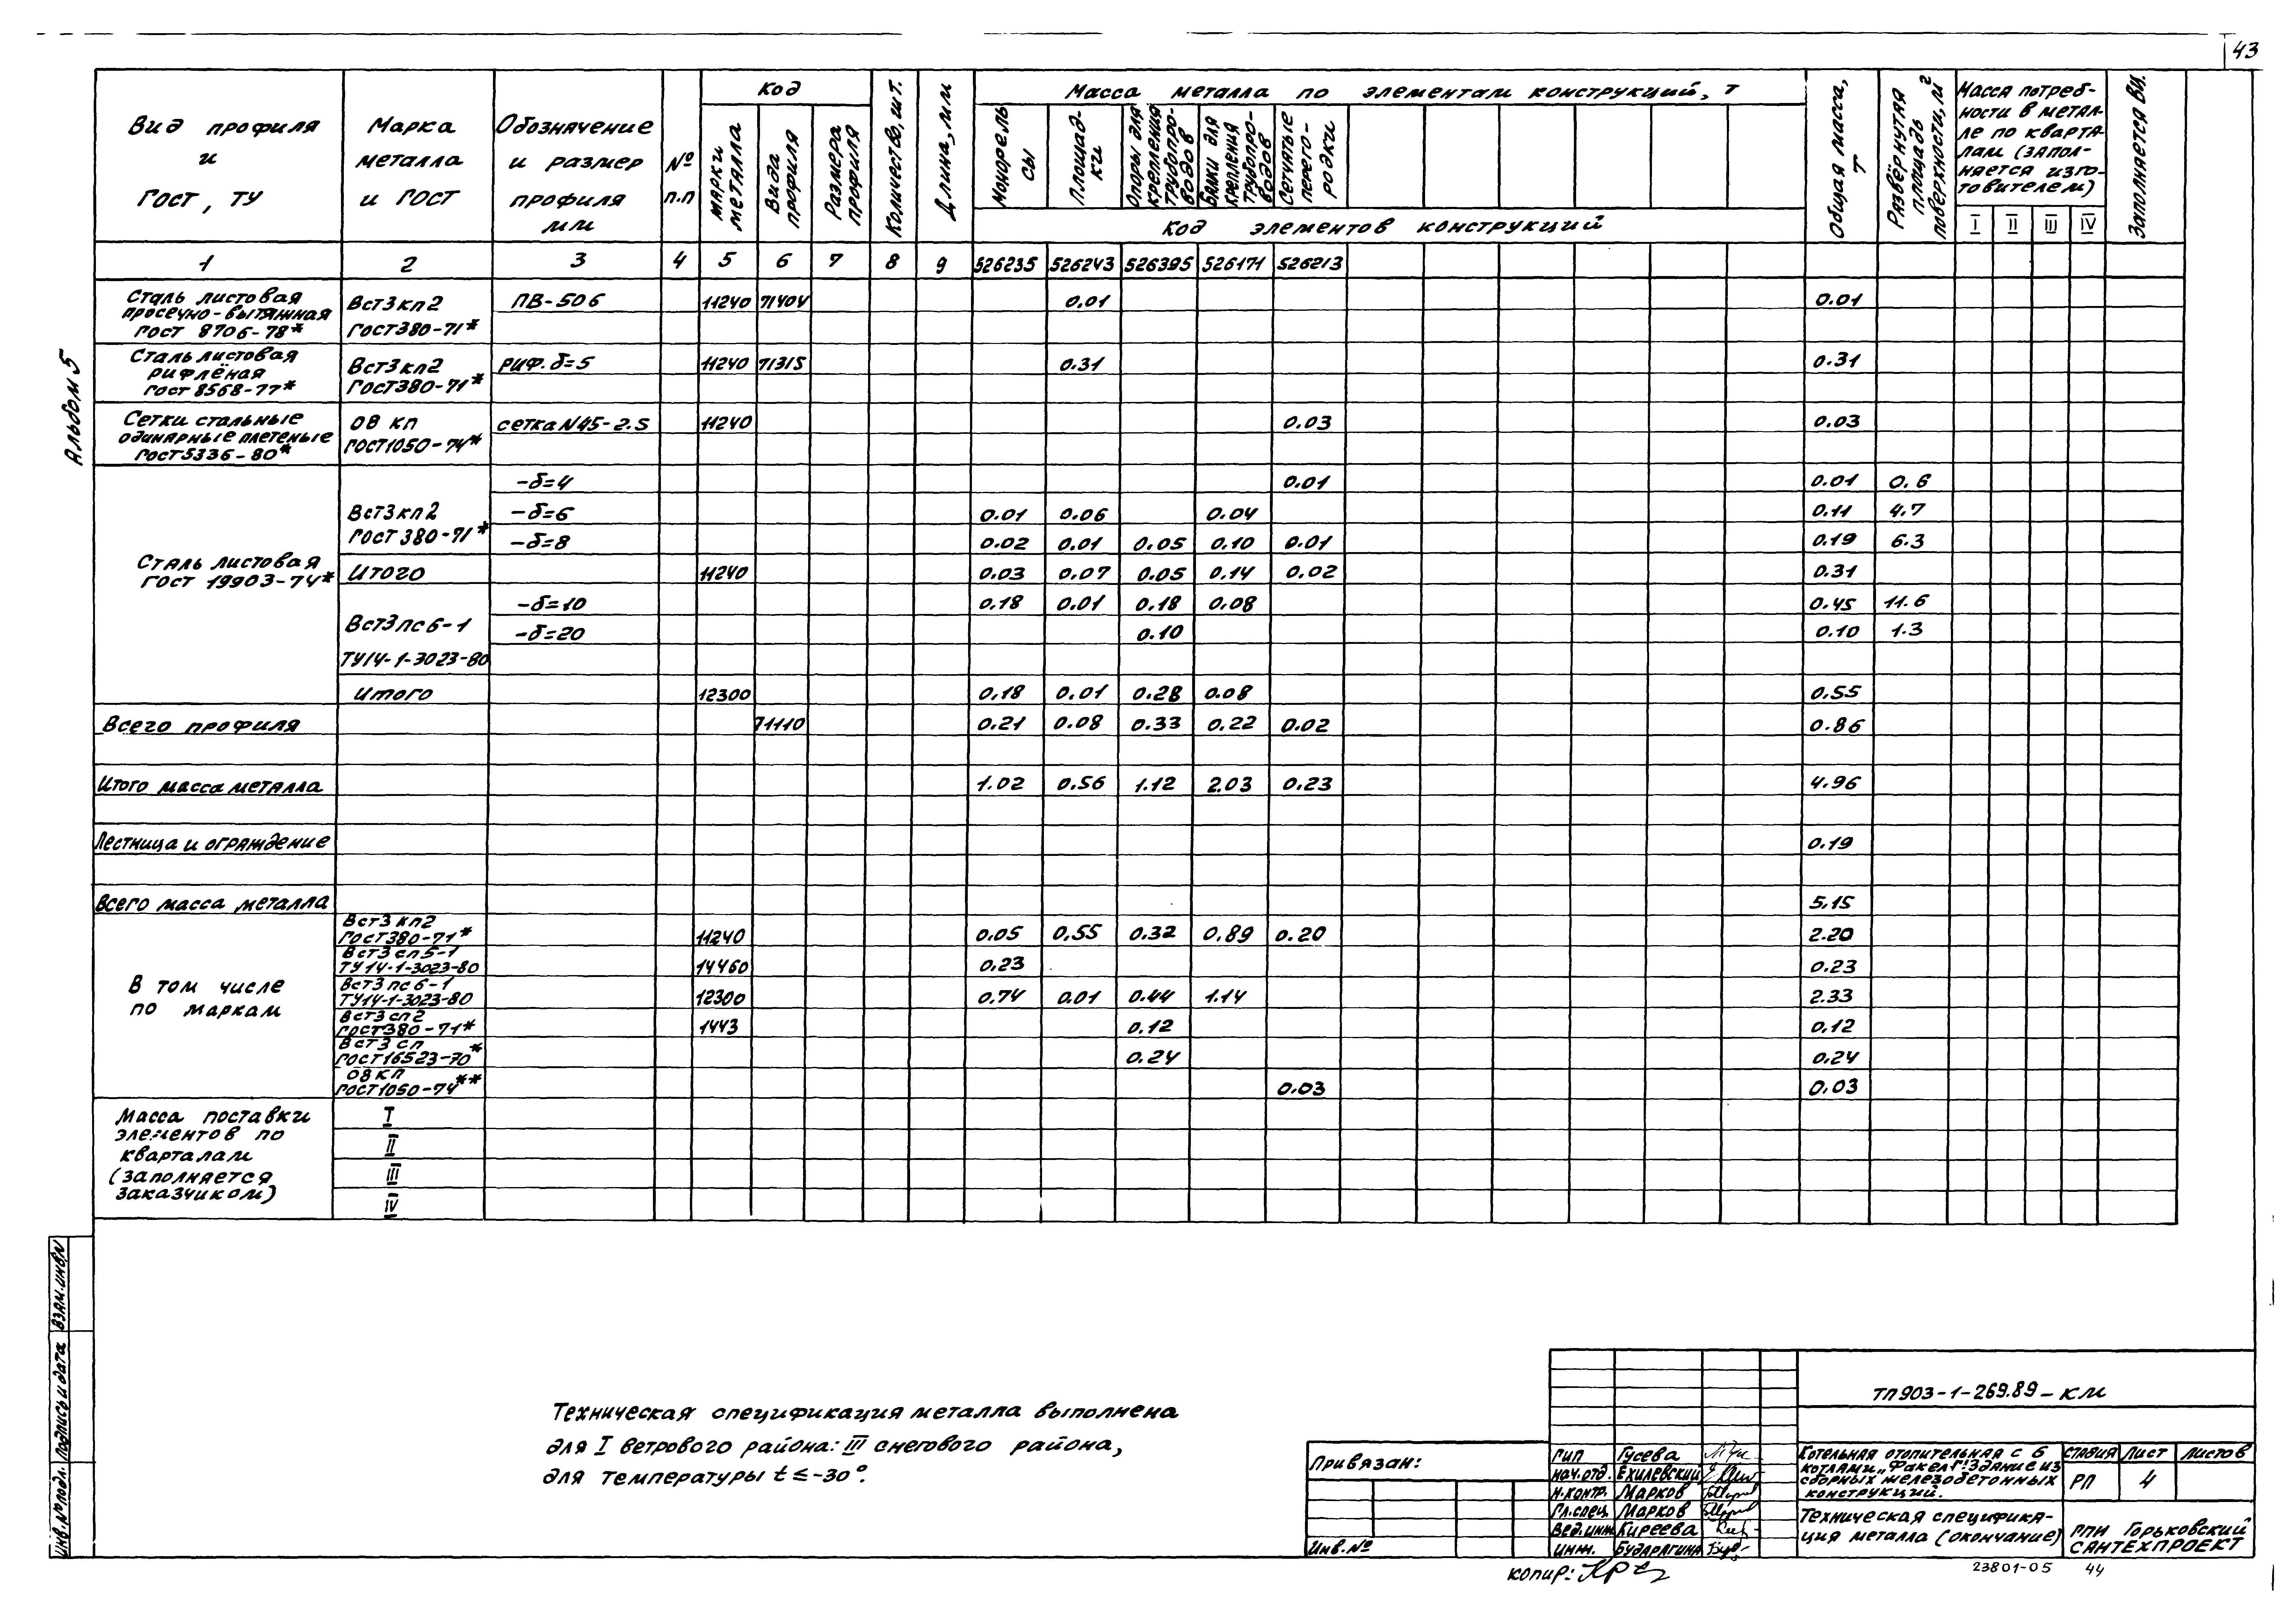 43
Альбом 5
Вид профиля и ГОСТ, ТУ
Марка металла и ГОСТ
Обозначение и размер профиля мм
№ п.п
Код
марки металла
вида профиля
размера профиля
Количество, шт.
Длина, мм
Масса металла по элементам конструкций, т
Монорельсы
Площадки
Опоры для крепления трубопроводов
Балки для крепления трубопроводов
Сетчатые перегородки
Код элементов конструкций
Общая масса, т
Развёрнутая площадь поверхности, м²
Масса потребности в металле по кварталам (заполняется изготовителем)
I II III IV
Заполняется ВЦ.
1 2 3 4 5 6 7 8 9 526235 526243 526395 526171 526213
Сталь листовая просечно-вытяжная ГОСТ 8706-78* Вст3кп2 ГОСТ380-71* ПВ-506 11240 71404 0.01 0.01
Сталь листовая рифлёная ГОСТ 8568-77* Вст3кп2 ГОСТ380-71* риф. δ=5 11240 71315 0.31 0.31
Сетки стальные одинарные плетеные ГОСТ5336-80* 08 кп ГОСТ1050-74* сетка N45-2.5 11240 0.03 0.03
Сталь листовая ГОСТ 19903-74*
Вст3кп2 ГОСТ 380-71*
-δ=4 0.01 0.01 0.6
-δ=6 0.01 0.06 0.04 0.11 4.7
-δ=8 0.02 0.01 0.05 0.10 0.01 0.19 6.3
Итого 11240 0.03 0.07 0.05 0.14 0.02 0.31
Вст3пс6-1 ТУ14-1-3023-80
-δ=10 0.18 0.01 0.18 0.08 0.45 11.6
-δ=20 0.10 0.10 1.3
Итого 12300 0.18 0.01 0.28 0.08 0.55
Всего профиля 71110 0.21 0.08 0.33 0.22 0.02 0.86
Итого масса металла 1.02 0.56 1.12 2.03 0.23 4.96
Лестница и ограждение 0.19
Всего масса металла 5.15
В том числе по маркам
Вст3кп2 ГОСТ380-71* 11240 0.05 0.55 0.32 0.89 0.20 2.20
Вст3сп5-1 ТУ14-1-3023-80 14460 0.23 0.23
Вст3пс6-1 ТУ14-1-3023-80 12300 0.74 0.01 0.44 1.14 2.33
Вст3сп2 ГОСТ380-71* 1443 0.12 0.12
Вст3сп ГОСТ16523-70* 0.24 0.24
08кп ГОСТ1050-74** 0.03 0.03
Масса поставки элементов по кварталам (заполняется заказчиком)
I
II
III
IV
Техническая спецификация металла выполнена
для I ветрового района: III снегового района,
для температуры t ≤ -30°.
Инв.№подл. Подпись и дата Взам.инв.N
Привязан:
Инв.№
ТП903-1-269.89-КМ
ГИП Гусева
Нач.отд. Ехилевский
Н.контр. Марков
Гл.спец. Марков
Вед.инж. Киреева
Инж. Бударагина
Котельная отопительная с 6
котлами „Факел Г". Здание из
сборных железобетонных
конструкций.
Стадия Лист Листов
РП 4
Техническая спецификация металла (окончание)
РПИ Горьковский
САНТЕХПРОЕКТ
Копир:
23801-05 44